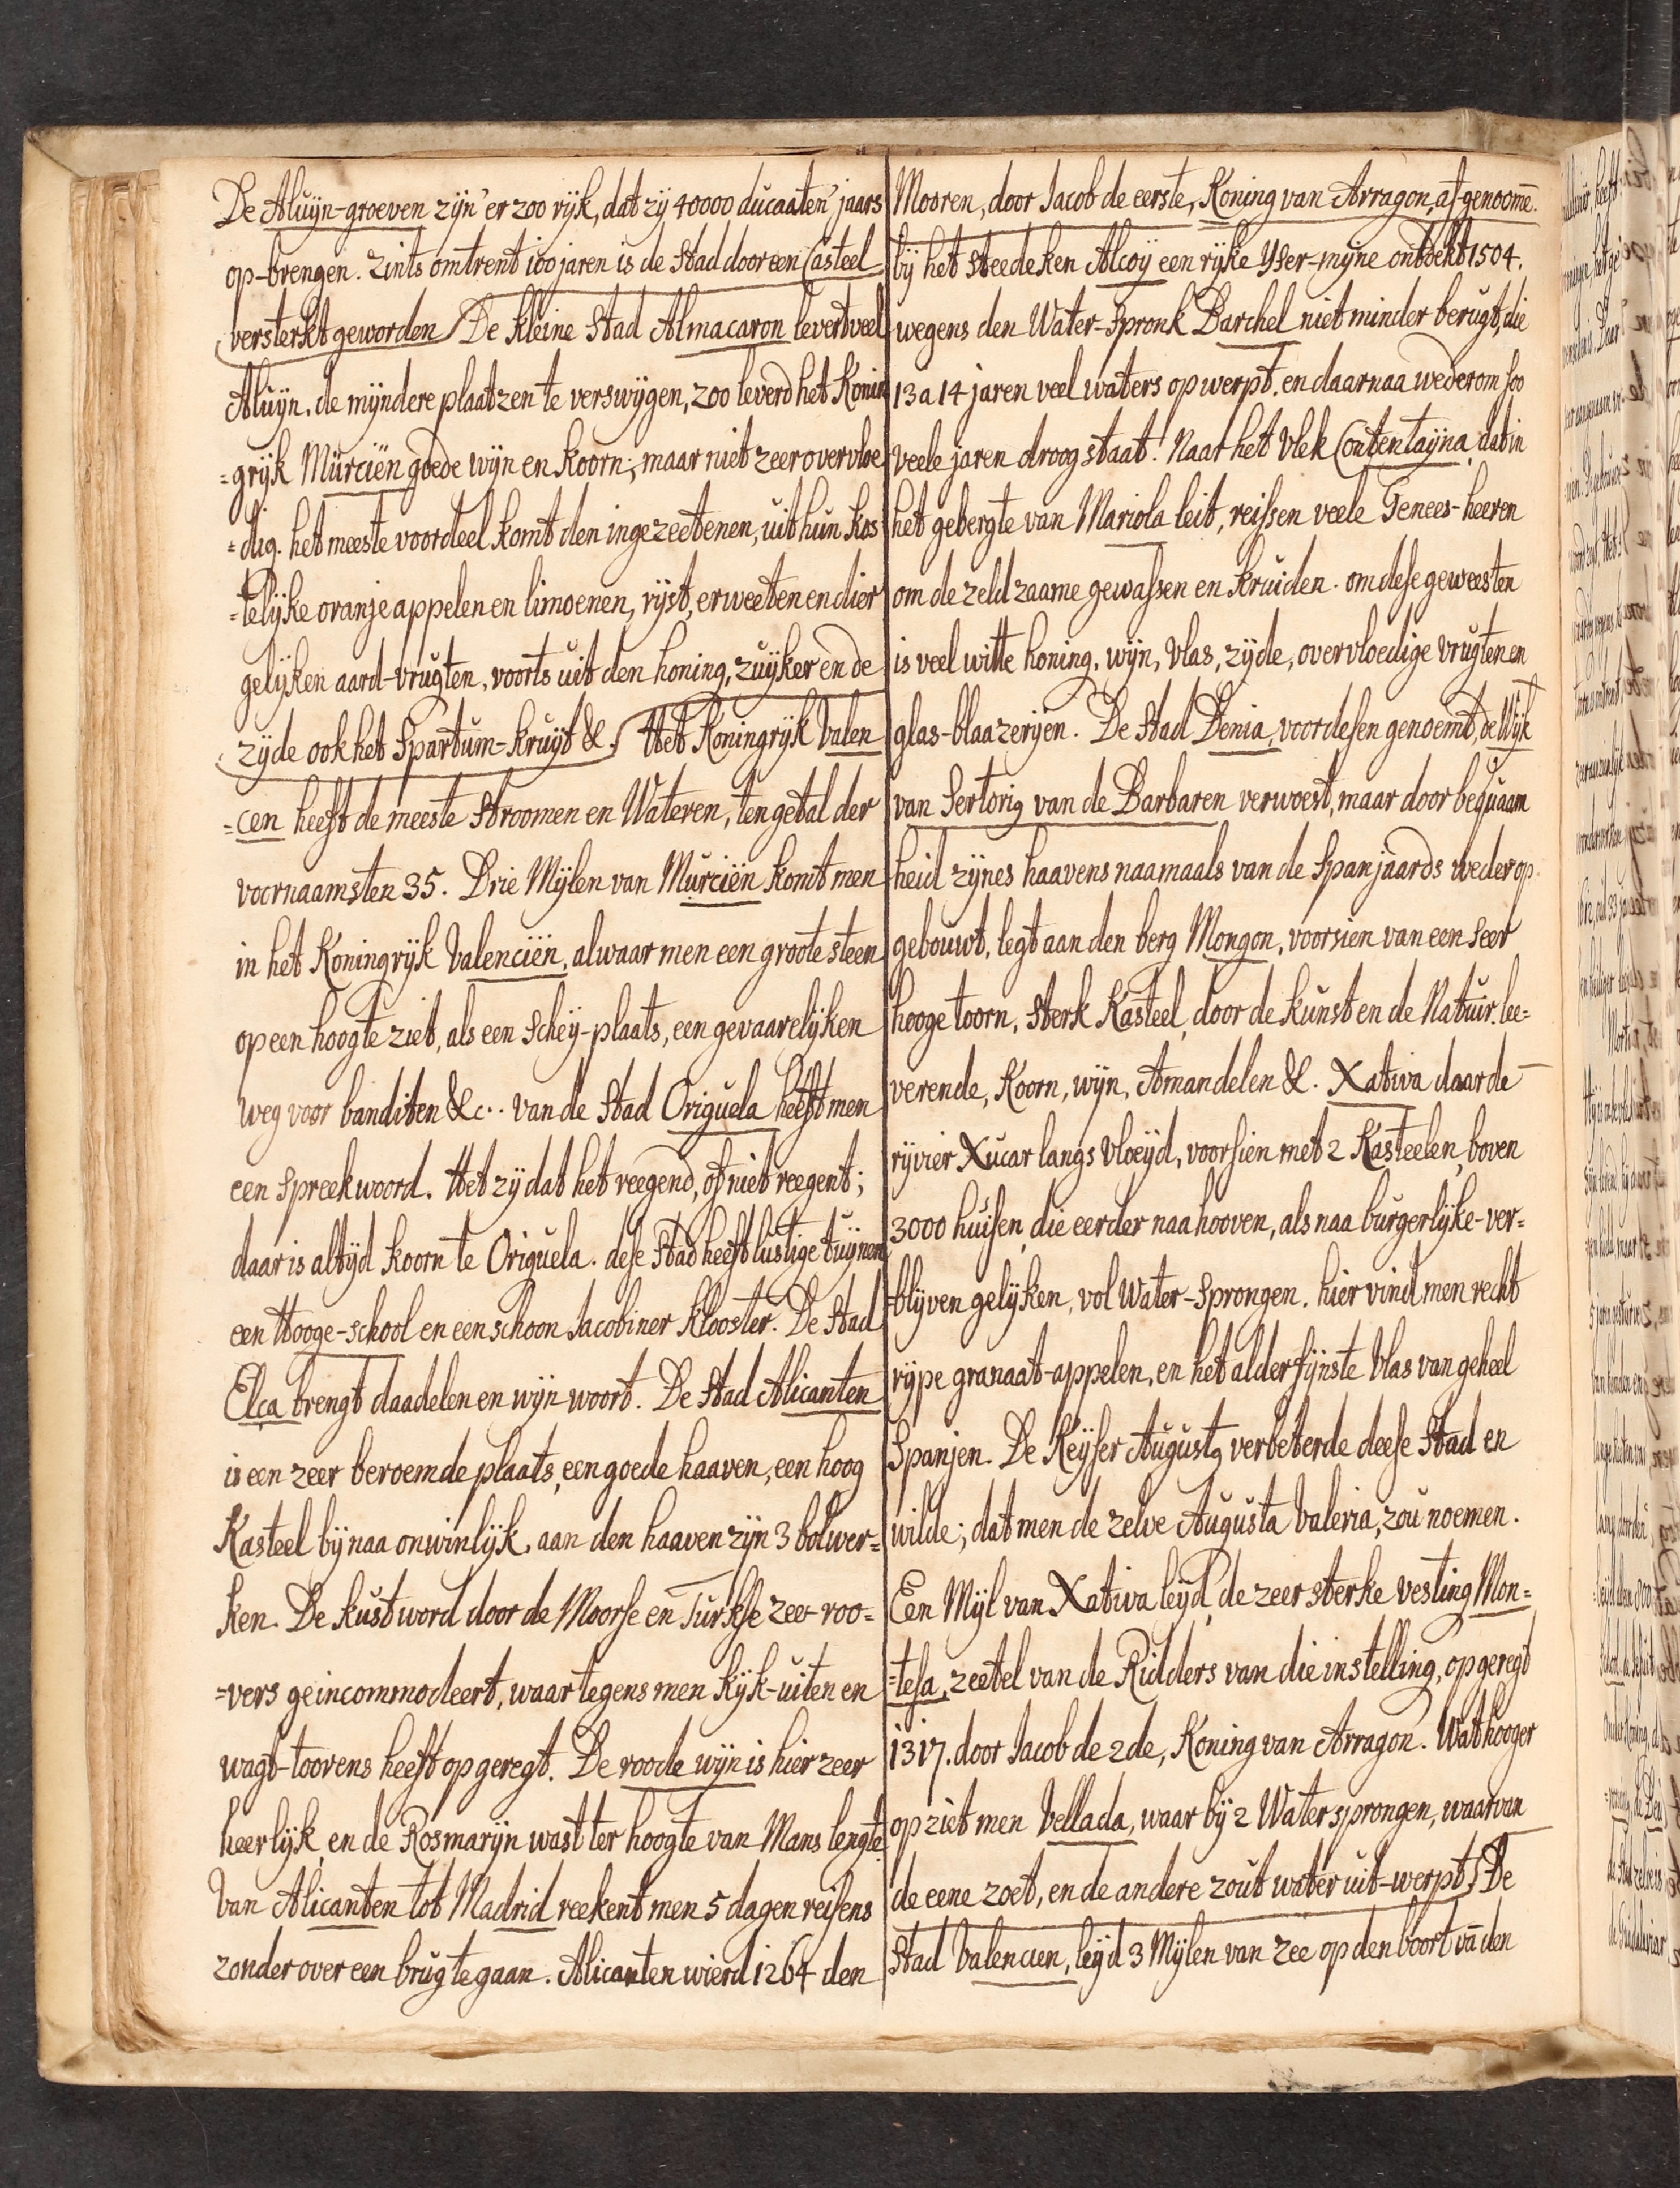 De Aluijn-groeven zijn 'er zoo rijk, dat zij 40000 ducaaten 'jaars
op-brengen. zints omtrent 100 jaren is de Stad door een Casteel
versterkt geworden De kleine Stad Almacaron levert veel
Aluijn. de mijndere plaatzen te verswijgen, zoo leverd het Konin
=grijk Murciën goede wijn en koorn; maar niet zeer overvloe
=dig. het meeste voordeel komt den ingezeetenen, uit hun kos
=telijke oranje appelen en limoenen, rijst, erweeten en dier
gelijken aard-vrugten, voorts uit den honing, zuijker en de
zijde ook het Spartum-kruijt &. Het Koningrijk Valen
=cen heeft de meeste Stroomen en Wateren, ten getal der
voornaamsten 35. Drie Mijlen van Murciën komt men
in het Koningrijk Valenciën, alwaar men een groote steen
op een hoogte ziet, als een Scheij-plaats, een gevaarelijken
weg voor banditen &c.. van de Stad Origuela heeft men
een Spreekwoord. Het zij dat het reegend, of niet reegent;
daar is altijd koorn te Origuela. dese Stad heeft lustige tuijnen
een Hooge-school en een schoon Jacobiner Klooster. De Stad
Elca brengt daadelen en wijn woort. De Stad Alicanten
is een zeer beroemde plaats, een goede haaven, een hoog
Kasteel bij naa onwinlijk, aan den haaven zijn 3 bolwer=
ken. De kust word door de Moorse en Turkse zee-roo=
=vers geincommodeert, waar tegens men kijk-uiten en
wagt-toorens heeft opgeregt. De roode wijn is hier zeer
heerlijk, en de Rosmarijn wast ter hoogte van Mans lengte.
Van Alicanten tot Madrid reekent men 5 dagen reisens
zonder over een brug te gaan. Alicanten wierd 1264 den
Mooren, door Jacob de eerste, Koning van Arragon, af-genoome.
bij het steedeken Alcoij een rijke Yser-mijne ontdekt 1504.
wegens den Water-Spronk Barchel niet minder berugt, die
13 a 14 jaren veel waters opwerpt. en daarnaa wederom soo
veele jaren droog staat! Naar het Vlek Contentaijna, dat in
het gebergte van Mariola leit, reissen veele Genees-heeren
om de zeldzaame gewassen en Kruiden. om dese geweesten
is veel witte honing, wijn, Vlas, zijde, overvloedige vrugten en
glas-blaazerijen. De Stad Denia, voordesen genoemt, de Wijk
van Sertorig van de Barbaren verwoest, maar door bequaam
heid zijnes haavens naamaals van de Spanjaards weder op
gebouwt, legt aan den berg Mongon, voorsien van een seer
hooge toorn, Sterk Kasteel, door de kunst en de Natuir. lee=
verende, Koorn, wijn, Amandelen &. Xativa daar de
rijvier Xucar langs vloeijd, voorsien met 2 Kasteelen, boven
3000 huisen, die eerder naa hooven, als naa burgerlijke-ver=
=blijven gelijken, vol Water-Sprongen. hier vind men recht
rijpe granaat-appelen, en het alder fijnste Vlas van geheel
Spanjen. De Keijser Augustg verbeterde deese Stad en
wilde; dat men de zelve Augusta Valeria, zou noemen.
Een Mijl van Xativa leijd, de zeer sterke vesting Mon=
=tesa, zeetel van de Ridders van die instelling, opgeregt
1317. door Jacob de 2de, Koning van Arragon. Wat hooger
op ziet men Vellada, waar bij 2 Water sprongen, waar van
de eene zoet, en de andere zout water uit-werpt. De
Stad Valencien, leijd 3 Mijlen van zee op den boort vā den